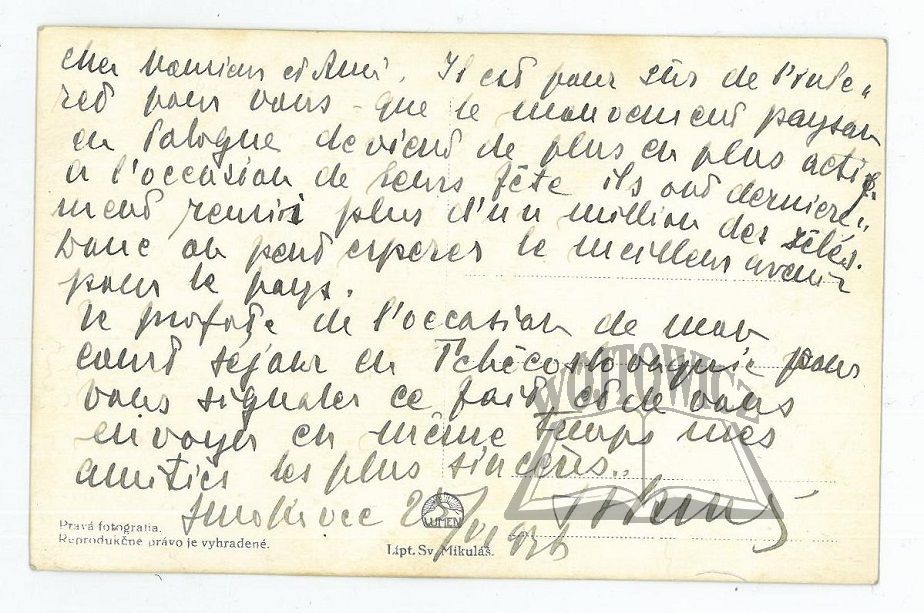 cher Monsieur et Ami. Il est pour sûr de l'inte„
ret pour vous - que le mouvement paysan
en Pologne devient de plus en plus actif.
a l'occasion de leurs fête ils ont derniere„
ment reunis plus d'un million des
Donc on peut esperer le meilleur avenir
pour le pays.
Je profite de l'occasion de mon
court séjour en Tchécoslovaquie pour
vous signaler ce fait et de vous
envoyer en même temps mes
amitiés les plus sincères..
Smokovec
Pravá fotografia.
Reprodukčné právo je vyhradené.
LUMEN
Lipt. Sv. Mikuláš.
WÓJTOWICZ